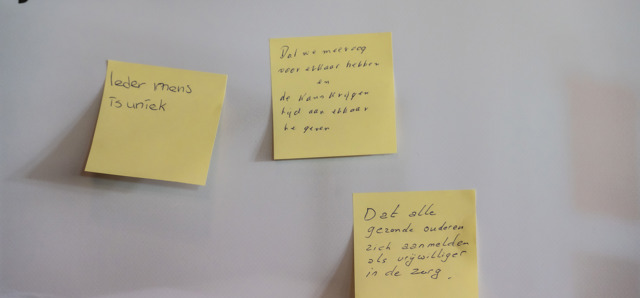 Ieder mens
is uniek
Dat we meer oog
voor elkaar hebben
en
de kans krijgen
tijd aan elkaar
te geven
Dat alle
gezonde ouderen
zich aanmelden
als vrijwilliger
in de zorg.